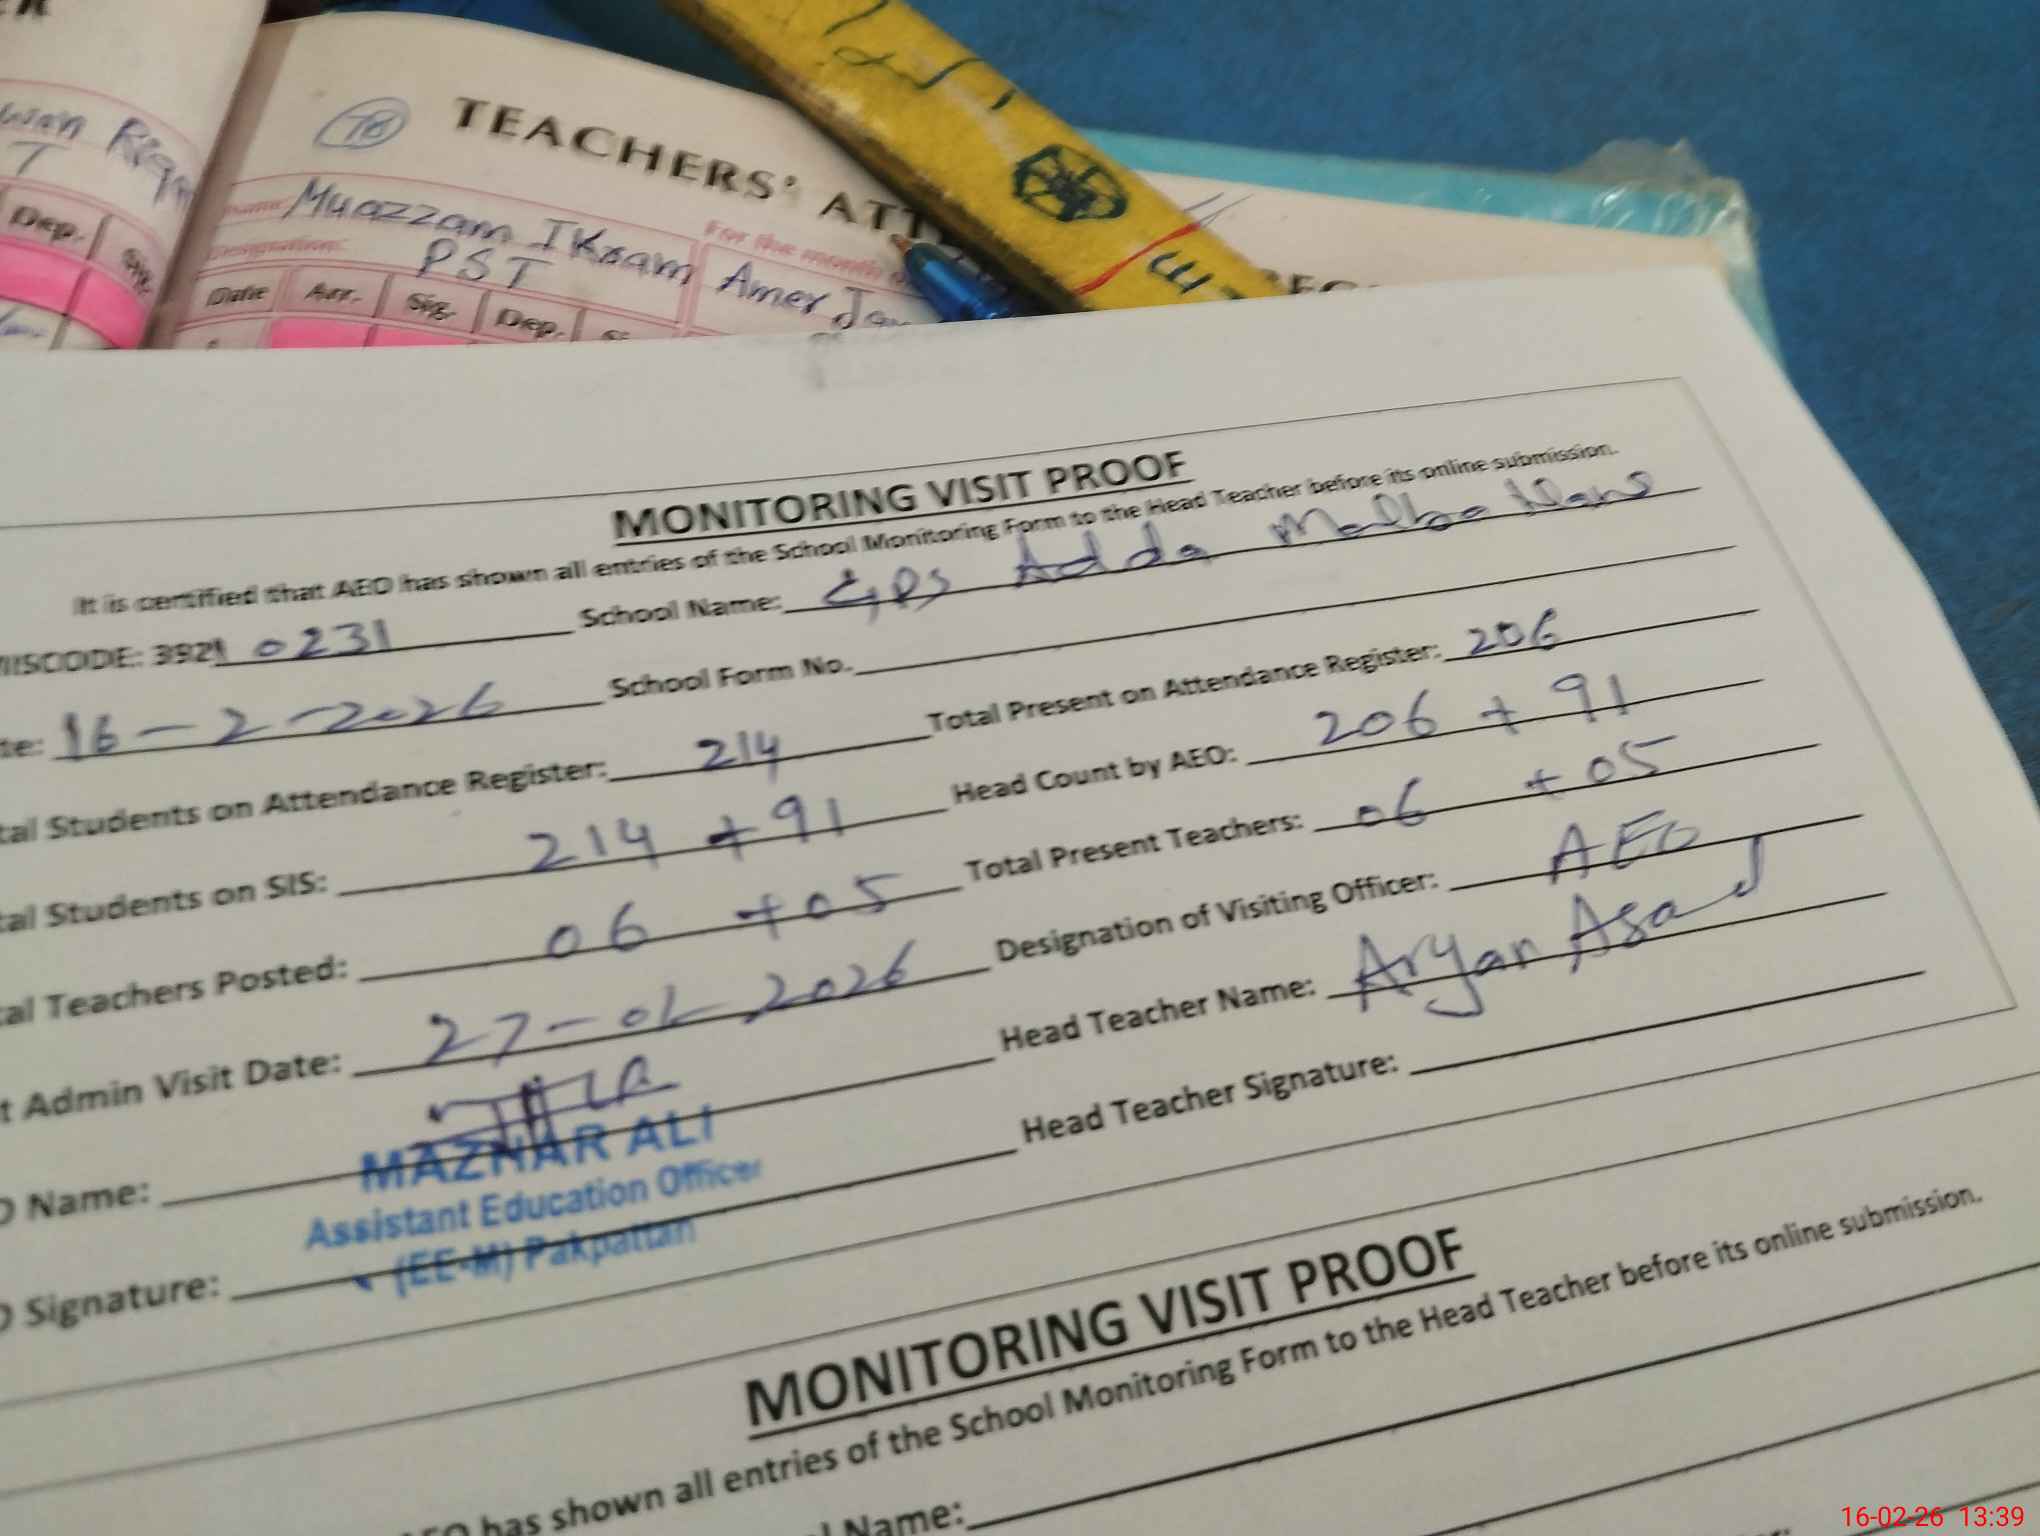 TEACHERS' ATT
78
Name: Muazzam Ikraam
For the month
Amer Jan
Designation: PST
Date Arr. Sig. Dep.
Dep. Sig.
MONITORING VISIT PROOF
It is certified that AEO has shown all entries of the School Monitoring Form to the Head Teacher before its online submission.
MISCODE: 3921 0231 School Name: GPS Adda
te: 16-2-2026 School Form No.
tal Students on Attendance Register: 214 Total Present on Attendance Register: 206
tal Students on SIS: 214 + 91 Head Count by AEO: 206 + 91
tal Teachers Posted: 06 + 05 Total Present Teachers: 06 + 05
t Admin Visit Date: 27-01-2026 Designation of Visiting Officer: AEO
O Name: Head Teacher Name: Aryan Asad
MAZHAR ALI
Assistant Education Officer
(EE-M) Pakpattan
O Signature: Head Teacher Signature:
MONITORING VISIT PROOF
EO has shown all entries of the School Monitoring Form to the Head Teacher before its online submission.
l Name:
16-02-26 13:39